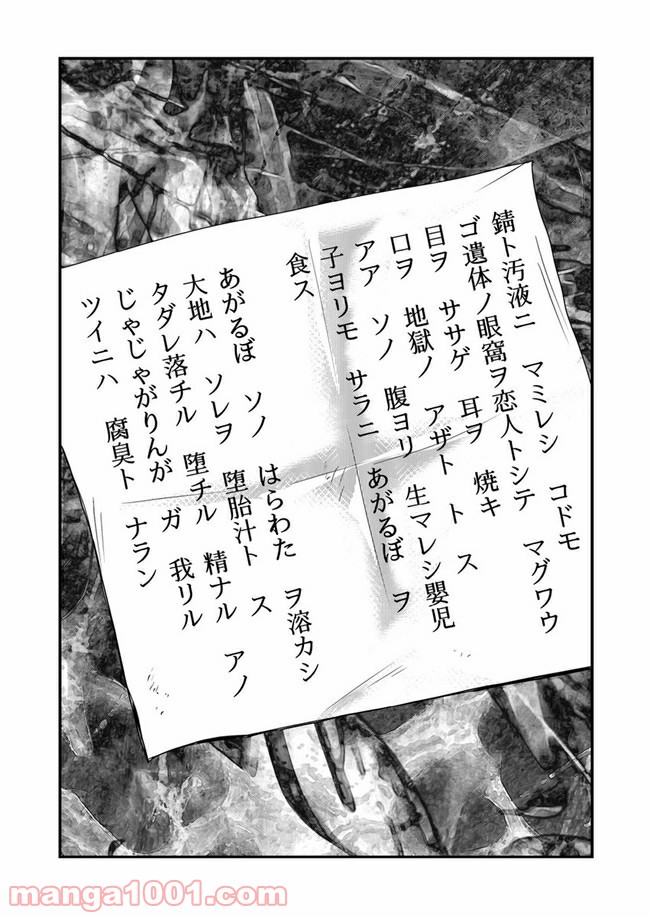 錆ト汚液ニ　マミレシ　コドモ
ゴ遺体ノ眼窩ヲ恋人トシテ　マグワウ
目ヲ　ササゲ　耳ヲ　焼キ
口ヲ　地獄ノ　アザト　ト　ス
アア　ソノ　腹ヨリ　生マレシ嬰児
子ヨリモ　サラニ　あがるぼ　ヲ
食ス
あがるぼ　ソノ　はらわた　ヲ溶カシ
大地ハ　ソレヲ　堕胎汁ト　ス
タダレ落チル　堕チル　精ナル　アノ
じゃじゃがりんが　ガ　我リル
ツイニハ　腐臭ト　ナラン
manga1001.com